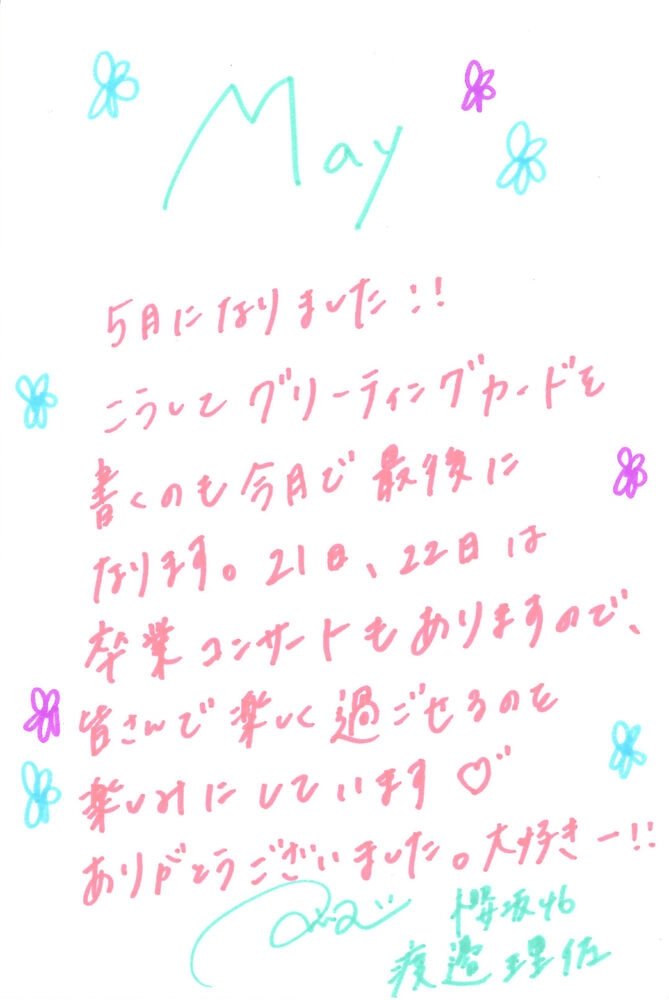 May
5月になりました!!
こうしてグリーティングカードを
書くのも今月で最後に
なります。21日、22日は
卒業コンサートもありますので、
皆さんで楽しく過ごせるのを
楽しみにしています♡
ありがとうございました。大好きー!!
櫻坂46
渡邉理佐